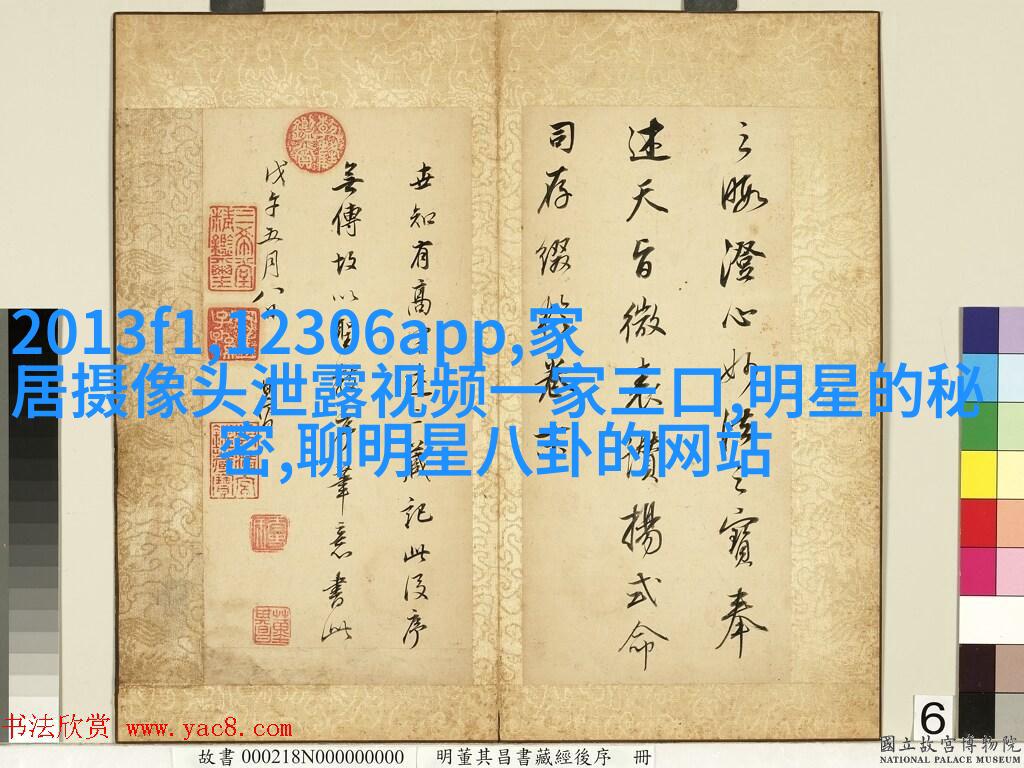 之晦澄心妙法之寶奉
述天旨微表讚揚式命
司存綴於卷
世知有高 藏記此後序
無傳故以聖 筆意書此
戊午五月八日
2013f1,12306app,家
居摄像头泄露视频一家三口,明星的秘
密,聊明星八卦的网站
6
书法欣赏 www.yac8.com
故書 000218N000000000 明董其昌書藏經後序 冊
國立故宮博物院
NATIONAL PALACE MUSEUM